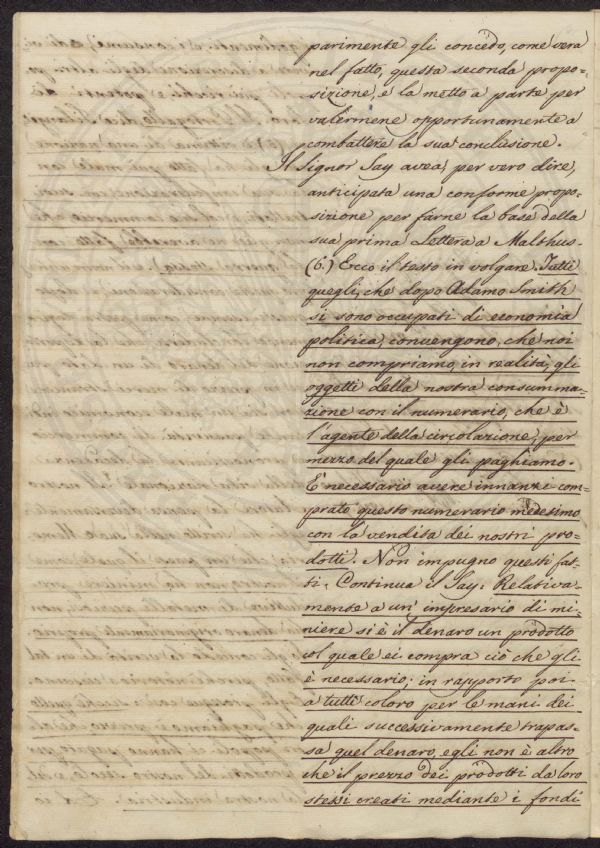 parimente gli concedo, come vera
nel fatto, questa seconda propo=
sizione, e la metto a parte per
valermene opportunamente a
combattere la sua conclusione.
Il Signor Say avea, per vero dire,
anticipata una conforme propo=
sizione per farne la base della
sua prima Lettera a Malthus.
(6.) Ecco il testo in volgare. Tutti
quegli, che dopo Adamo Smith
si sono occupati di economia
politica, convengono, che noi
non compriamo, in realità, gli
oggetti della nostra consumma=
zione con il numerario, che è
l'agente della circolazione, per
mezzo del quale gli paghiamo.
E' necessario avere innanzi com=
prato questo numerario medesimo
con la vendita dei nostri pro=
dotti. Non impugno questi fat=
ti. Continua il Say. Relativa=
mente a un' impresario di mi=
niere si è il denaro un prodotto
col quale ei compra ciò che gli
è necessario; in rapporto poi
a tutti coloro per le mani dei
quali successivamente trapas=
sa quel denaro, egli non è altro
che il prezzo dei prodotti da loro
stessi creati mediante i fondi